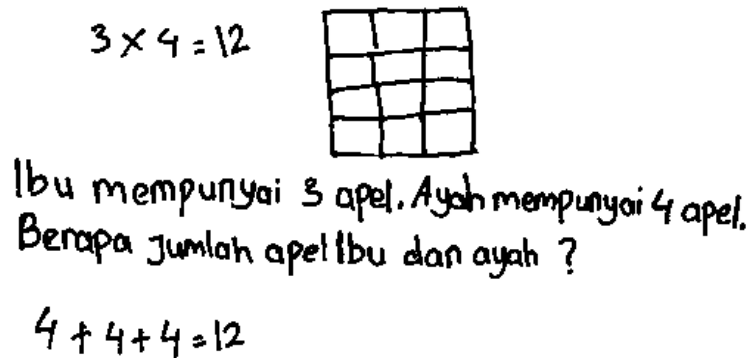 3 × 4 = 12
Ibu mempunyai 3 apel. Ayah mempunyai 4 apel.
Berapa Jumlah apel Ibu dan ayah ?
4 + 4 + 4 = 12